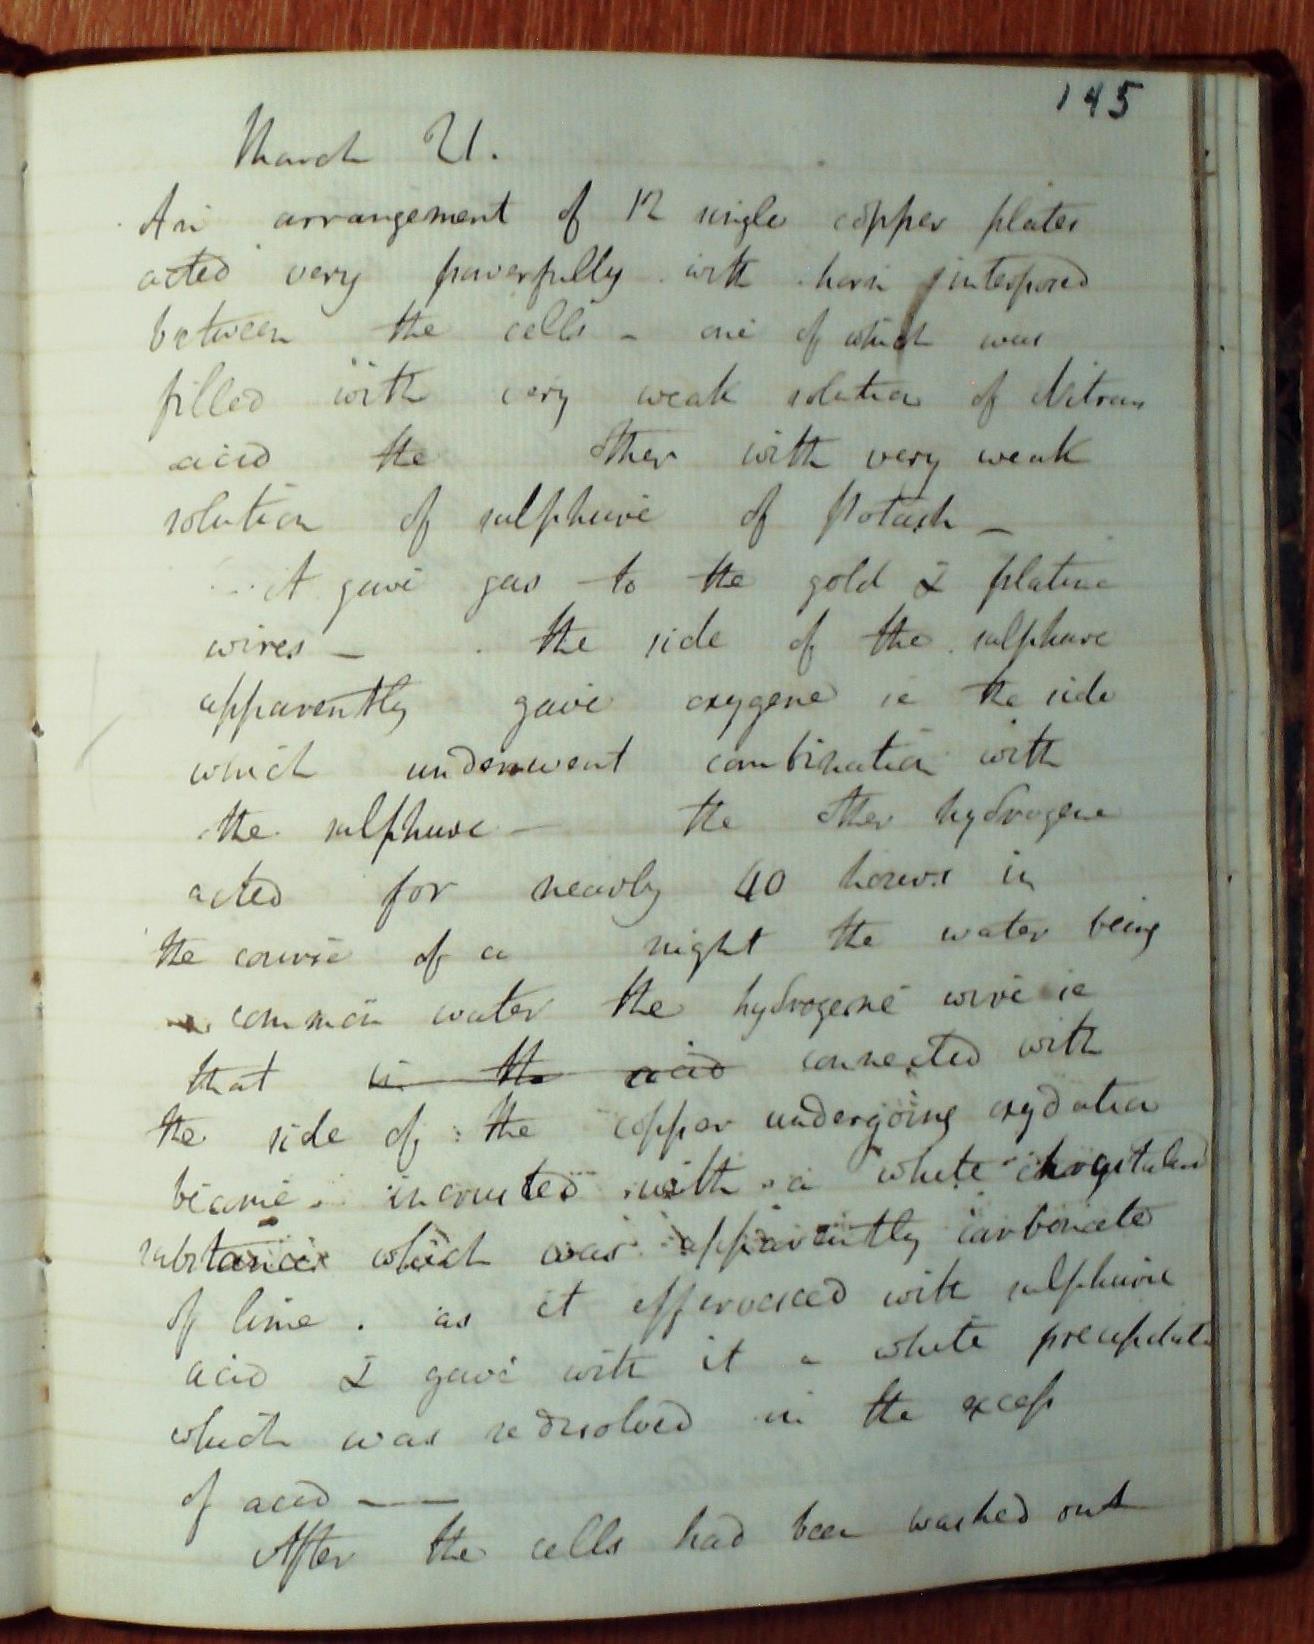 145
March 21.
An arrangement of 12 single copper plates
acted very powerfully with horn interposed
between the cells - one of which was
filled with very weak solution of Nitrous
acid the other with very weak
solution of sulphure of Potash -
it gave gas to the gold & platina
wires - the side of the sulphure
apparently gave oxygene ie the side
which underwent combination with
the sulphure - the other hydrogene
acted for nearly 40 hours in
the course of a night the water being
common water the hydrogene wire ie
that in the acid connected with
the side of the copper undergoing oxydation
became incrusted with a white
substance which was apparently carbonate
of lime. as it effervesced with sulphuric
acid & gave with it a white precipitate
which was redissolved in the excess
of acid -
After the cells had been washed out